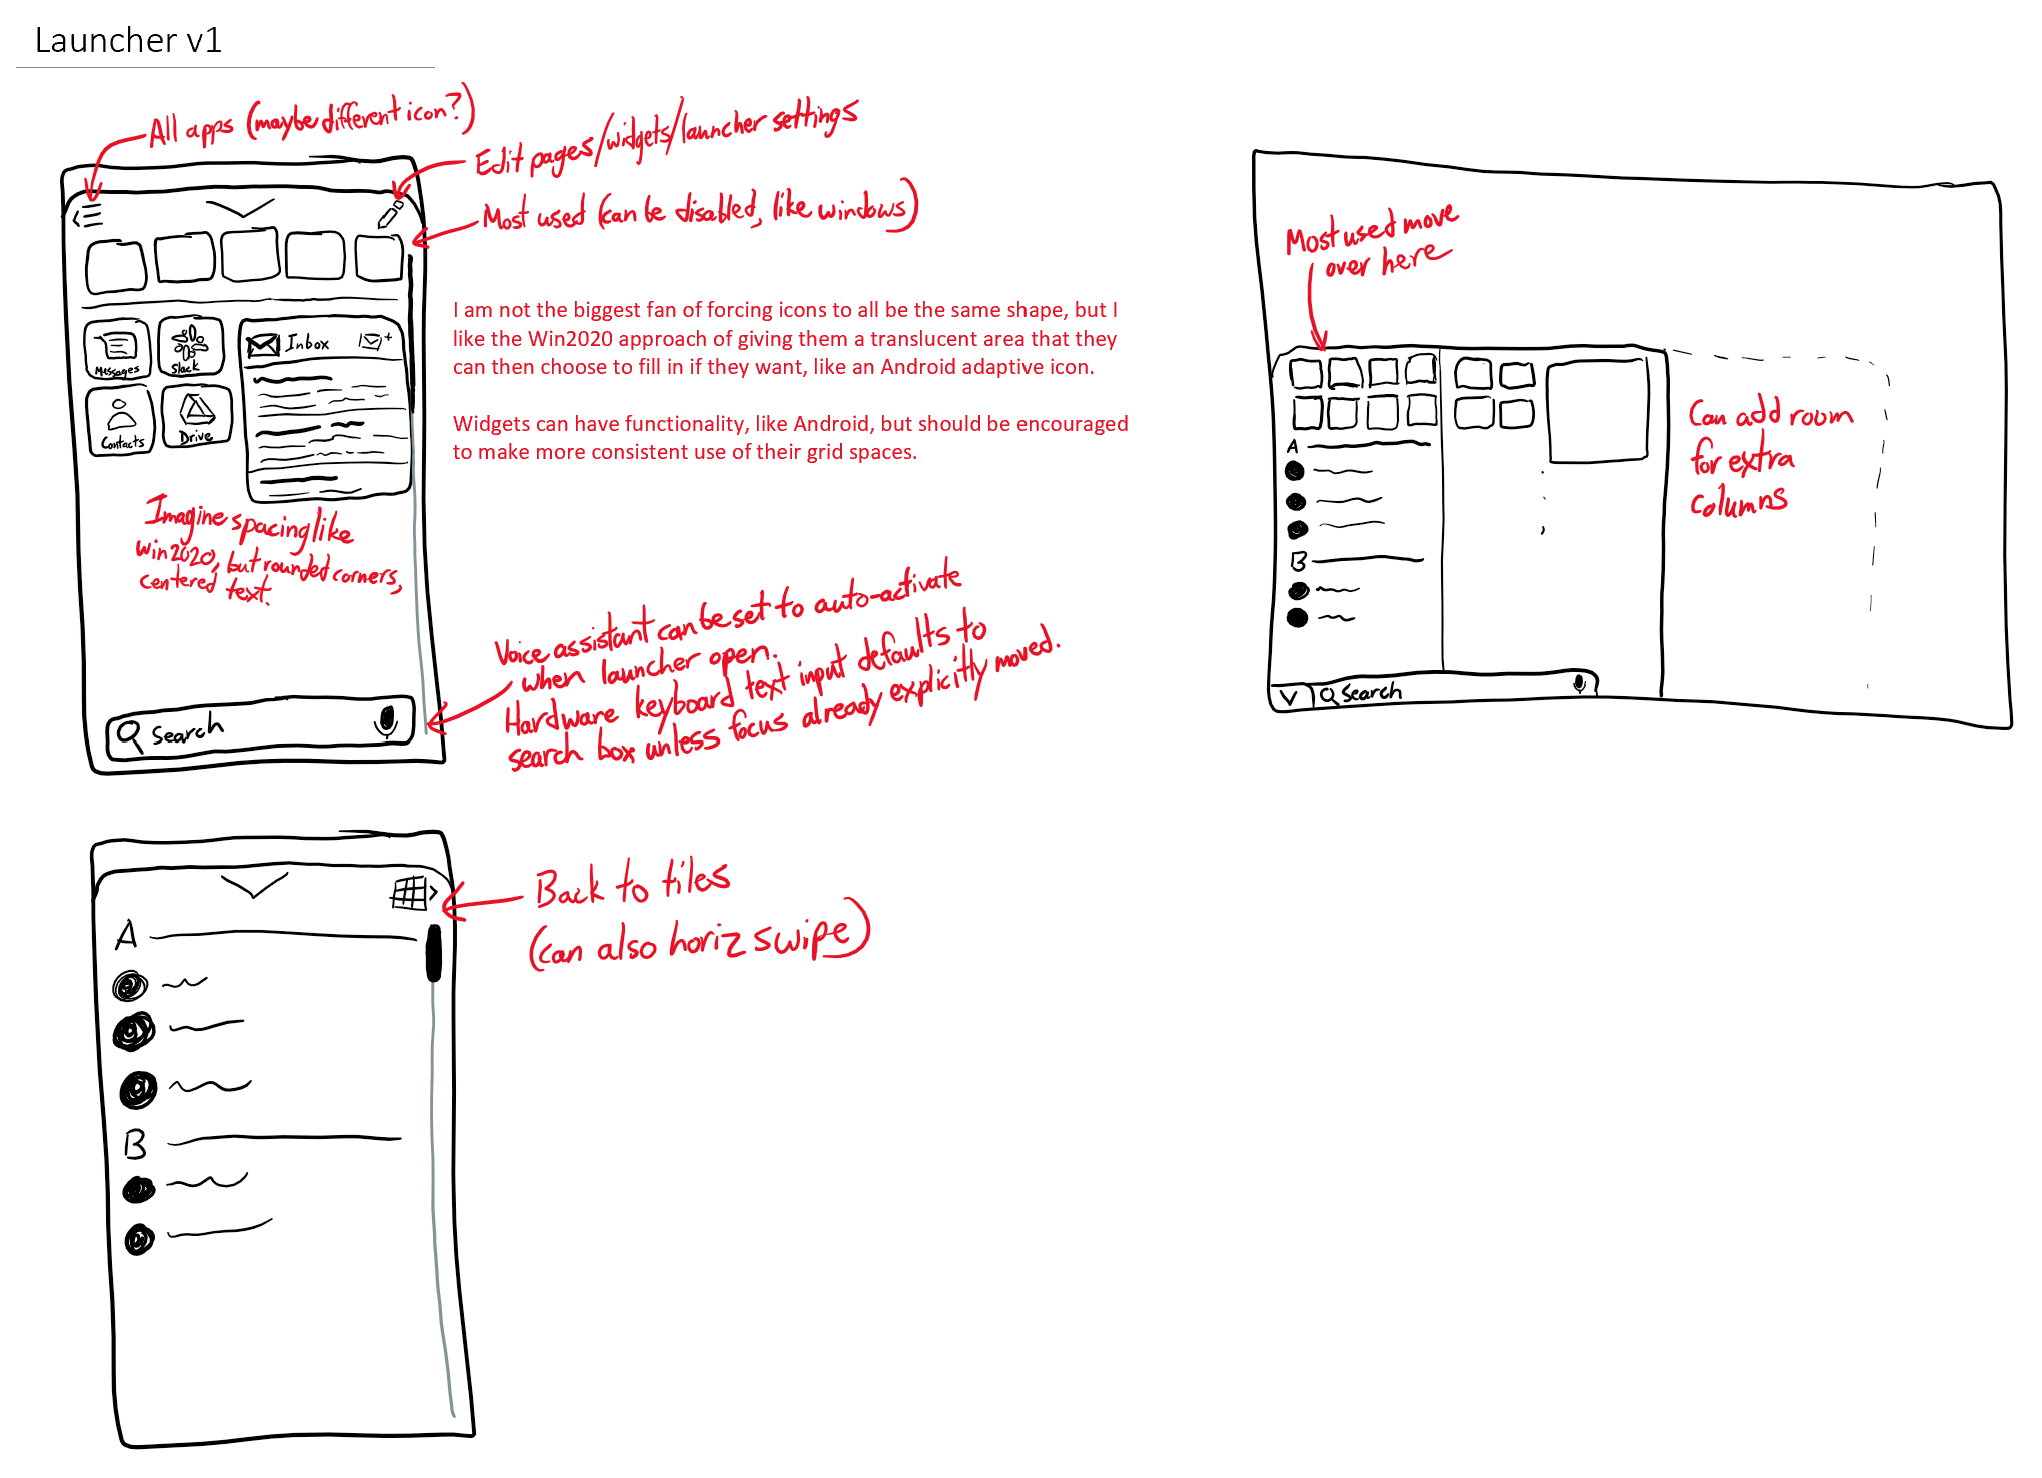 Launcher v1
All apps (maybe different icon?)
Edit pages/widgets/launcher settings
Most used (can be disabled, like windows)
Messages
Slack
Contacts
Drive
Inbox
I am not the biggest fan of forcing icons to all be the same shape, but I
like the Win2020 approach of giving them a translucent area that they
can then choose to fill in if they want, like an Android adaptive icon.
Widgets can have functionality, like Android, but should be encouraged
to make more consistent use of their grid spaces.
Imagine spacing like
win2020, but rounded corners,
centered text.
Voice assistant can be set to auto-activate
when launcher open.
Hardware keyboard text input defaults to
search box unless focus already explicitly moved.
Search
A
B
Back to tiles
(can also horiz swipe)
Most used move
over here
A
B
Search
Can add room
for extra
columns